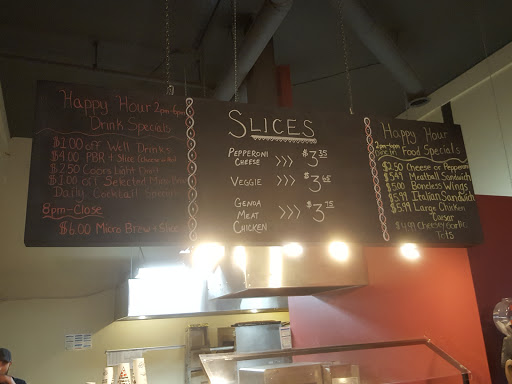 Happy Hour 2pm-6pm
Drink Specials
$1.00 off Well Drinks
$4.00 PBR + Slice (cheese or
$2.50 Coors Light Draft
$1.00 off Selected Micro Brew
Daily Cocktail Special
8pm-Close
$6.00 Micro Brew + Slice
SLICES
PEPPERONI
CHEESE >>> $3.35
VEGGIE >>> $3.65
GENOA
MEAT >>> $3.75
CHICKEN
Happy Hour
2pm-6pm Food Specials
$2.50 Cheese or Pepperoni
$5.49 Meatball Sandwich
$5.00 Boneless Wings
$5.99 Italian Sandwich
$5.99 Large Chicken
Caesar
$4.99 Cheesey Garlic